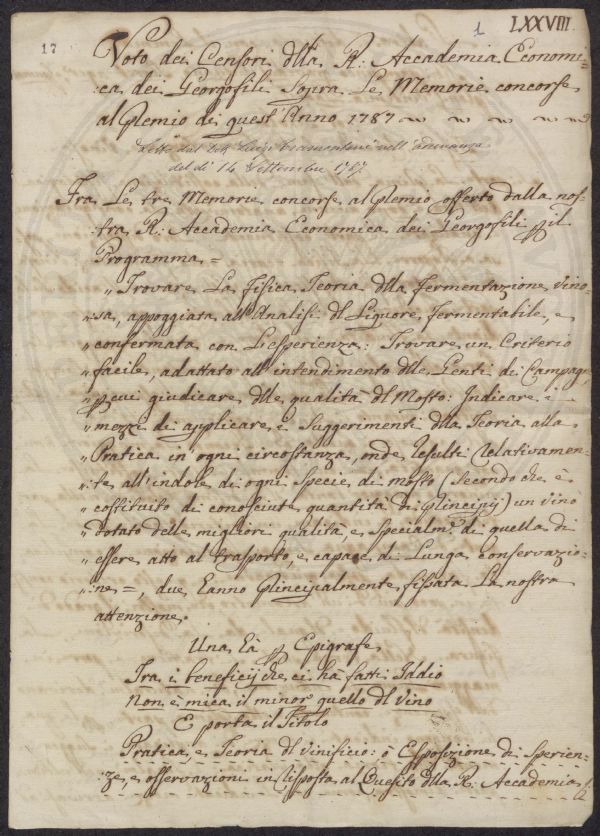 LXXVIII.
1
17
Voto dei Censori dlla R: Accademia Economi=
ca dei Georgofili Sopra Le Memorie concorse
al Premio di quest'Anno 1787
Letto dal Sig. Luigi Tramontani nell'Adunanza
del dì 14 Settembre 1787.
Fra Le tre Memorie concorse al Premio offerto dalla nos=
tra R: Accademia Economica dei Georgofili p il
Programma =
" Trovare La fisica Teoria dlla fermentazione vino=
" sa, appoggiata all'Analisi dl Liquore fermentabile, e
" confermata con L'esperienza: Trovare un Criterio
" facile, adattato all'intendimento dlle Genti di Campagna
" p cui giudicare dlle qualità dl Mosto: Indicare i
" mezzi di applicare i Suggerimenti dlla Teoria alla
" Pratica in ogni circostanza, onde resulti relativamen=
" te all'indole di ogni Specie di mosto (Secondo che è
" costituito di conosciute quantità di Principij) un vino
" dotato delle migliori qualità, e Specialm.e di quella di
" essere atto al trasporto, e capace di Lunga conservazio=
" ne =, due hanno Principalmente fissata La nostra
attenzione.
Una hà p Epigrafe
Tra i beneficij che ci hà fatti Iddio
Non è mica il minor quello dl vino
E porta il Titolo
Pratica, e Teoria dl vinificio: o Esposizione di Sperien=
ze, e osservazioni in risposta al Quesito dlla R. Accademia